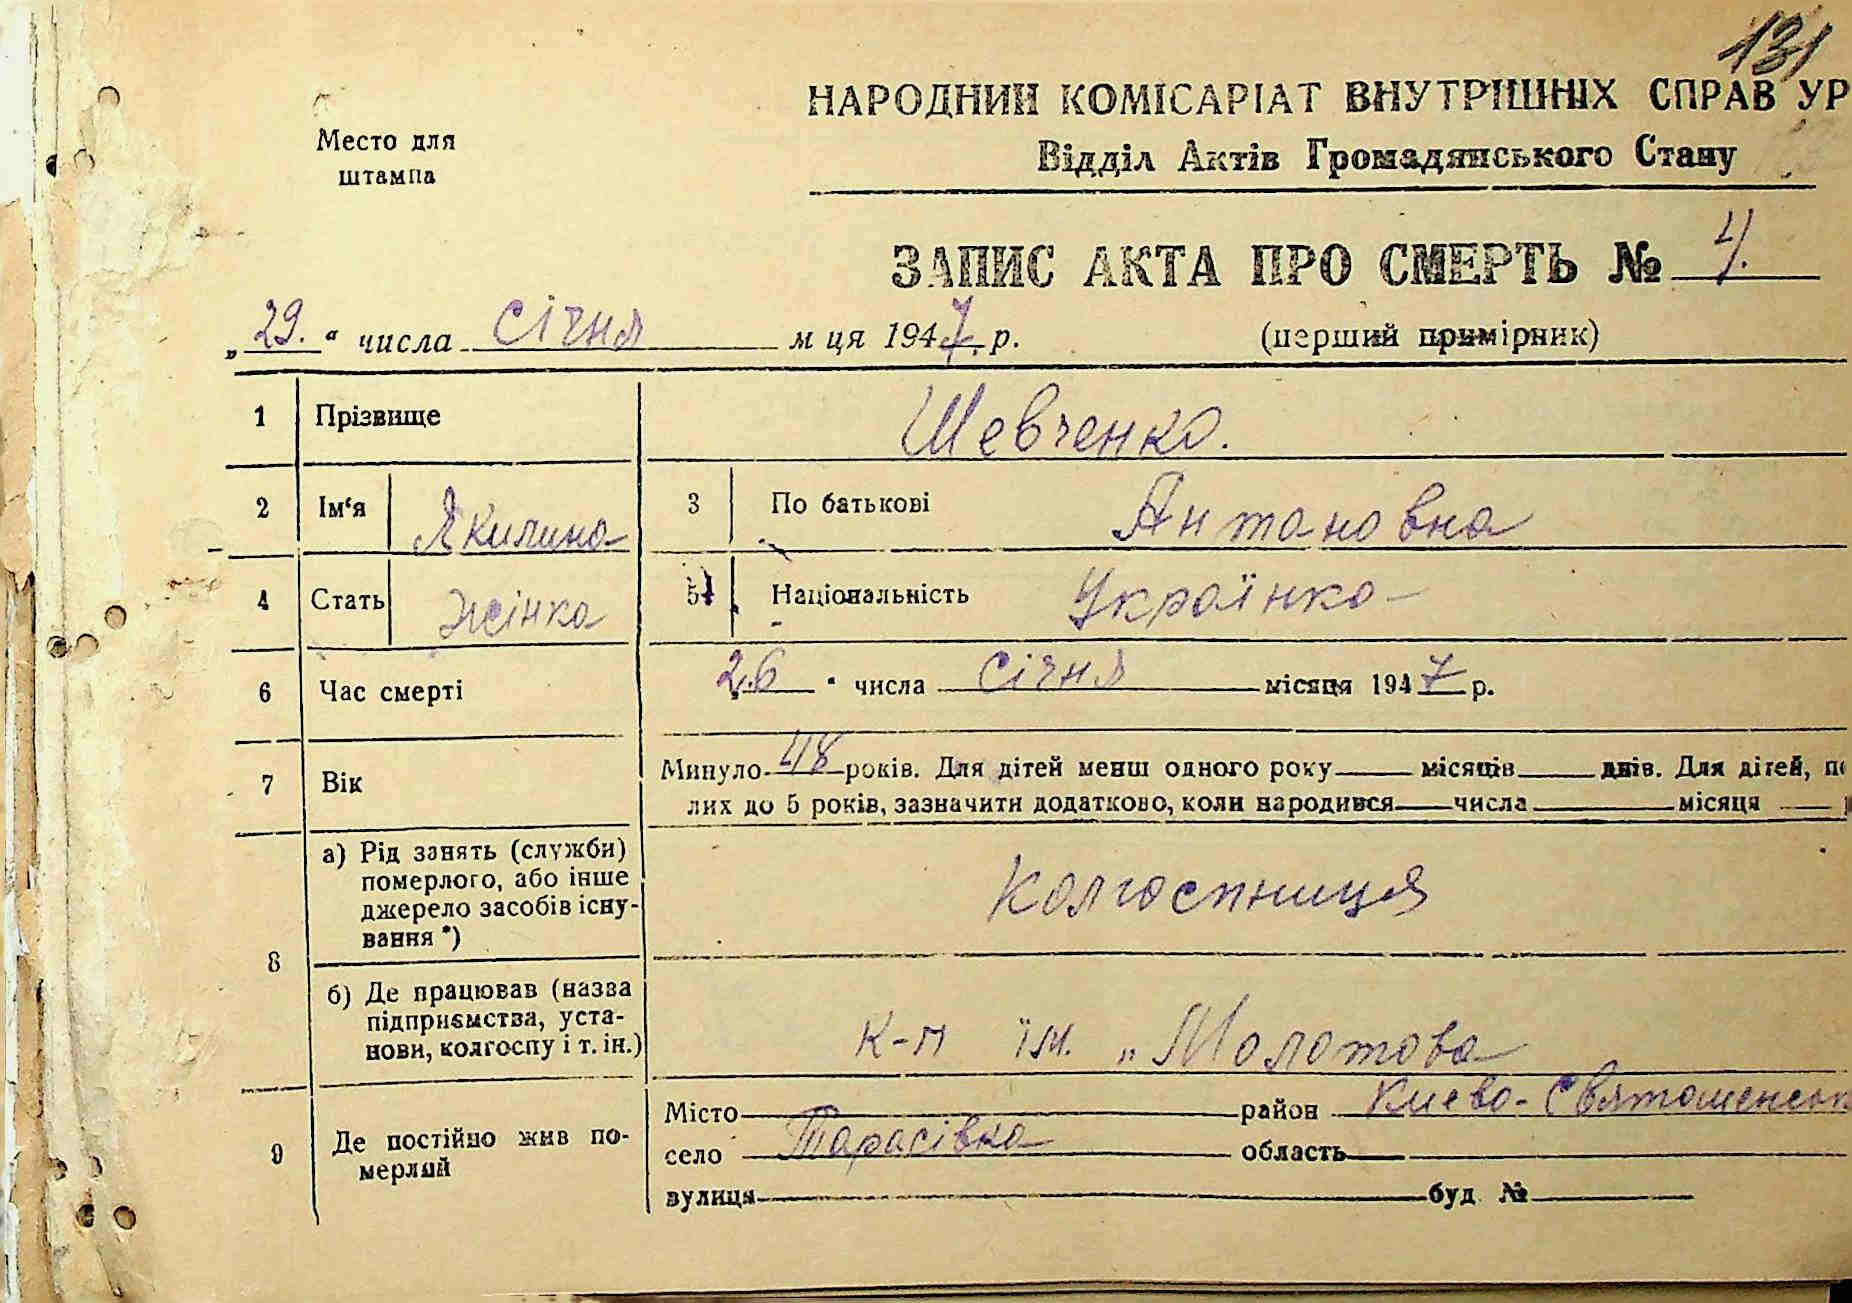 131
НАРОДНИЙ КОМІСАРІАТ ВНУТРІШНІХ СПРАВ УР
Место для
штампа
Відділ Актів Громадянського Стану
ЗАПИС АКТА ПРО СМЕРТЬ № 4.
„29.“ числа січня м ця 1947 р. (перший примірник)
1 Прізвище Шевченко.
2 Ім‘я Якилина 3 По батькові Антановна
4 Стать жінка 5 Національність Українка
6 Час смерті 26 " числа січня місяця 1947 р.
7 Вік Минуло 48 років. Для дітей менш одного року місяців днів. Для дітей, по
лих до 5 років, зазначити додатково, коли народився числа місяця
8 а) Рід занять (служби)
померлого, або інше
джерело засобів існу-
вання *)
Колгоспниця
б) Де працював (назва
підприємства, уста-
нови, колгоспу і т. ін.)
к-п їм. „Молотова
9 Де постійно жив по-
мерлий
Місто район Києво-Святошенськ
село Тарасівка область
вулиця буд №